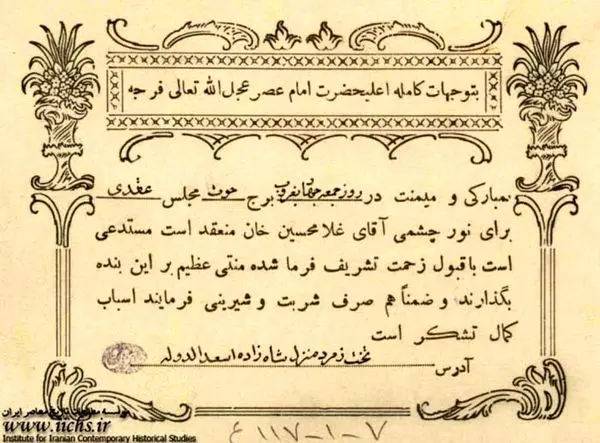 بتوجهات کامله اعلیحضرت امام عصر عجل الله تعالی فرجه
بمبارکی و میمنت در روز جمعه برج حوت مجلس عقدی
برای نور چشمی آقای غلامحسین خان منعقد است مستدعی
است با قبول زحمت تشریف فرما شده منتی عظیم بر این بنده
بگذارند و ضمناً هم صرف شربت و شیرینی فرمایند اسباب
کمال تشکر است
آدرس تخت زمرد منزل شاه زاده اسعد الدوله
موسسه مطالعات تاریخ معاصر ایران
www.iichs.ir
Institute for Iranian Contemporary Historical Studies
۱۱۷-۱-۷ ع